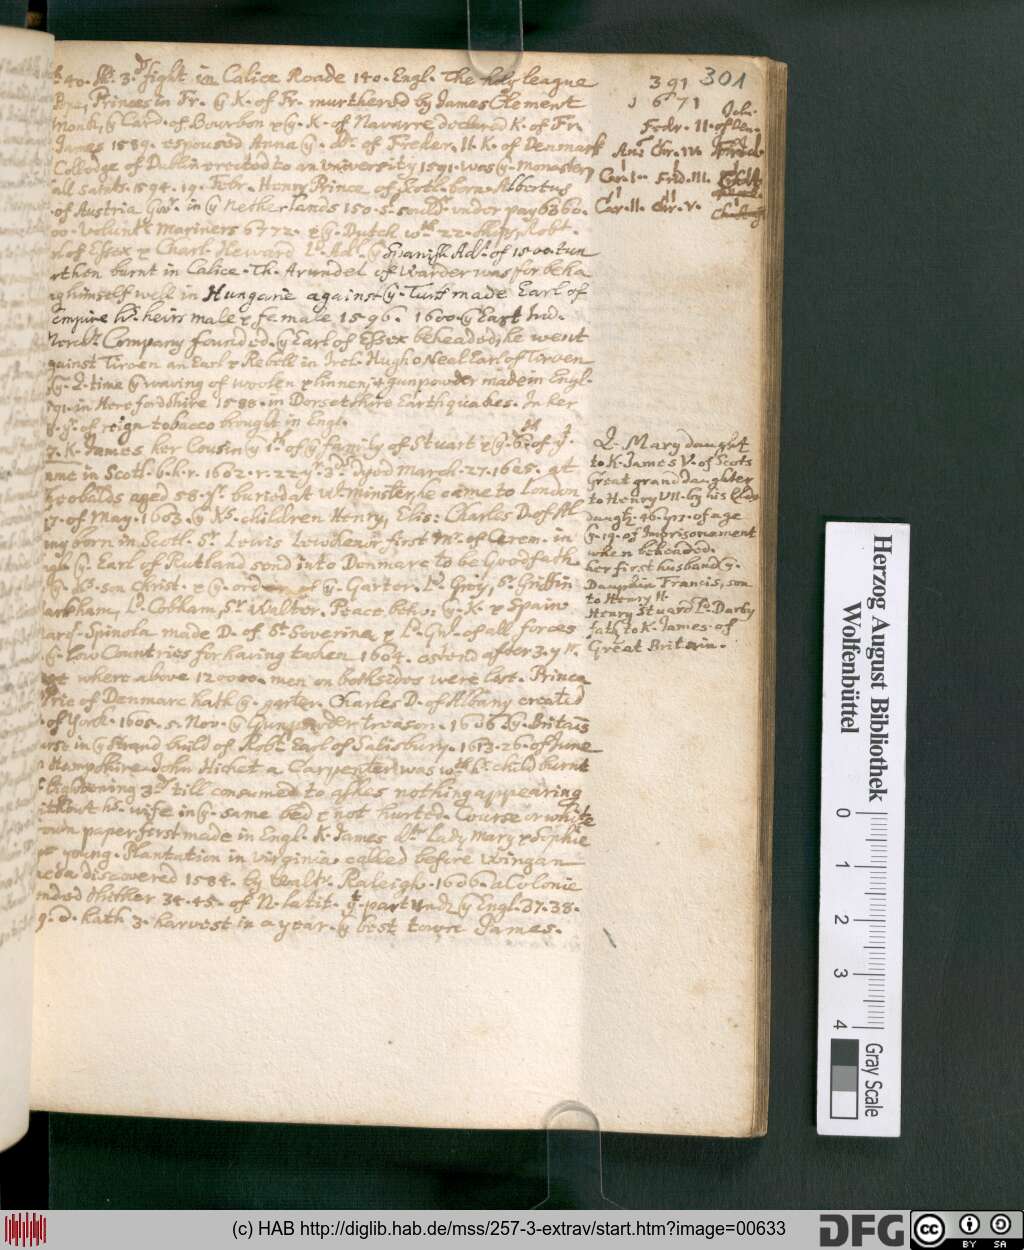 40. Sh. 3.d fight in Calice Roade 140. Engl. The holy league
Princes in Fr. & K. of Fr. murthered by James Clement
monk, ÿ Card. of Bourbon & ÿ. K. of Navarre declared K. of Fr.
James 1589. espoused Anna ÿ. dr. of Freder. II. K. of Denmark
Colledge of Dublin erected to an university 1591. was ÿ. monastery
all Saints. 1594. 19. Febr. Henry Prince of Scotl. born. Albertus
of Austria Gov.r in ÿ Netherlands 150. s. sould.rs under pay 6360.
volunt.s mariners 6772. & ÿ. Dutch w.th 22. ships, Rob.t
of Essex & Charl. Heward L.d Ad. ÿ Spanish Ad.l of 1500. tun
burnt in Calice. Th. Arundel of Warder was for beha
himself well in Hungarie against ÿ. Turk made Earl of
Empire h.s heirs male & female 1596. 1600. ÿ East Ind.
Merch.ts Company founded. ÿ Earl of Essex beheaded, he went
against Tiroen an Earl & Rebell in Irel. Hugh o Neel Earl of Tiroen
time ÿ weaving of woolen & linnen, & gunpowder made in Engl.
in Herefordshire 1588. in Dorsetshire Earthquakes. In her
of reign tobacco brought in Engl.
K. James her Cousin ÿ 1.st of ÿ family of Stuart & ÿ. 6.th of ÿ.
name in Scotl. b. k. r. 1602. r. 22 y.s 3.d dyed March. 27. 1625. at
Theobalds aged 58. y.s buried at Wtminster, he came to London
17. of May. 1603. ÿ K.s children Henry, Elis: Charles D. of Al
bany born in Scotl. S.r Lewis Lewkenor first M.r of Cerem. in
ÿ. Earl of Rutland send into Denmare to be Goodfath.
K.s son Christ. & ÿ. order of ÿ Garter. L.d Grey, S.r Griffin
Markham, L.d Cobham, S.r Walter. Peace betw. ÿ. K. & Spain
Spinola made D. of S.t Severina & L.d Gn.l of all forces
ÿ. low Countries for having taken 1604. ostend after 3. y.rs
where above 120000. men on both sides were lost. Prince
Vric of Denmark hath ÿ. garter. Charles D. of Albany created
of York. 1605. 5. Nov. ÿ Gunpowder treason. 1606 ÿ. Britains
burse in ÿ Strand build of Rob.t Earl of Salisbury. 1613. 26. of June
Hampshire John Hichet a Carpenter was w.th h.s child burnt
lightening 3.d till consumed to ashes nothing appearing
without h.s wife in ÿ. same bed & not hurted. Course or white
brown paper ferst made in Engl. K. James d.rs Lady Mary & Sophie
young. Plantation in virginia called before Wingan
decoa discovered 1584. by Walt.r Raleigh. 1606. a Colonie
sended thither 34. 45. of N. latit. ÿ.t part und.r ÿ Engl. 37. 38.
9. d. hath 3. harvest in a year. ÿ best town James.
391 301
1671
Joh.
Fedr. II. of Den.
Ans Chr. IV.
Car. I. Frid. III.
Car. II. Chr. V.
Q. Mary daught
to K. James V. of Scots
Great grand daughter
to Henry VII. by his Elde
daugt. 46. yrs. of age
ÿ. 19. of Imprisonament
when beheaded.
her first husband ÿ.
Dauphin Francis, son
to Henry II.
Henry Stuard L.d Darly
fath. to K. James. of
Great Britain.
Herzog August Bibliothek
Wolfenbüttel
0 1 2 3 4
Gray Scale
(c) HAB http://diglib.hab.de/mss/257-3-extrav/start.htm?image=00633
DFG
cc BY SA